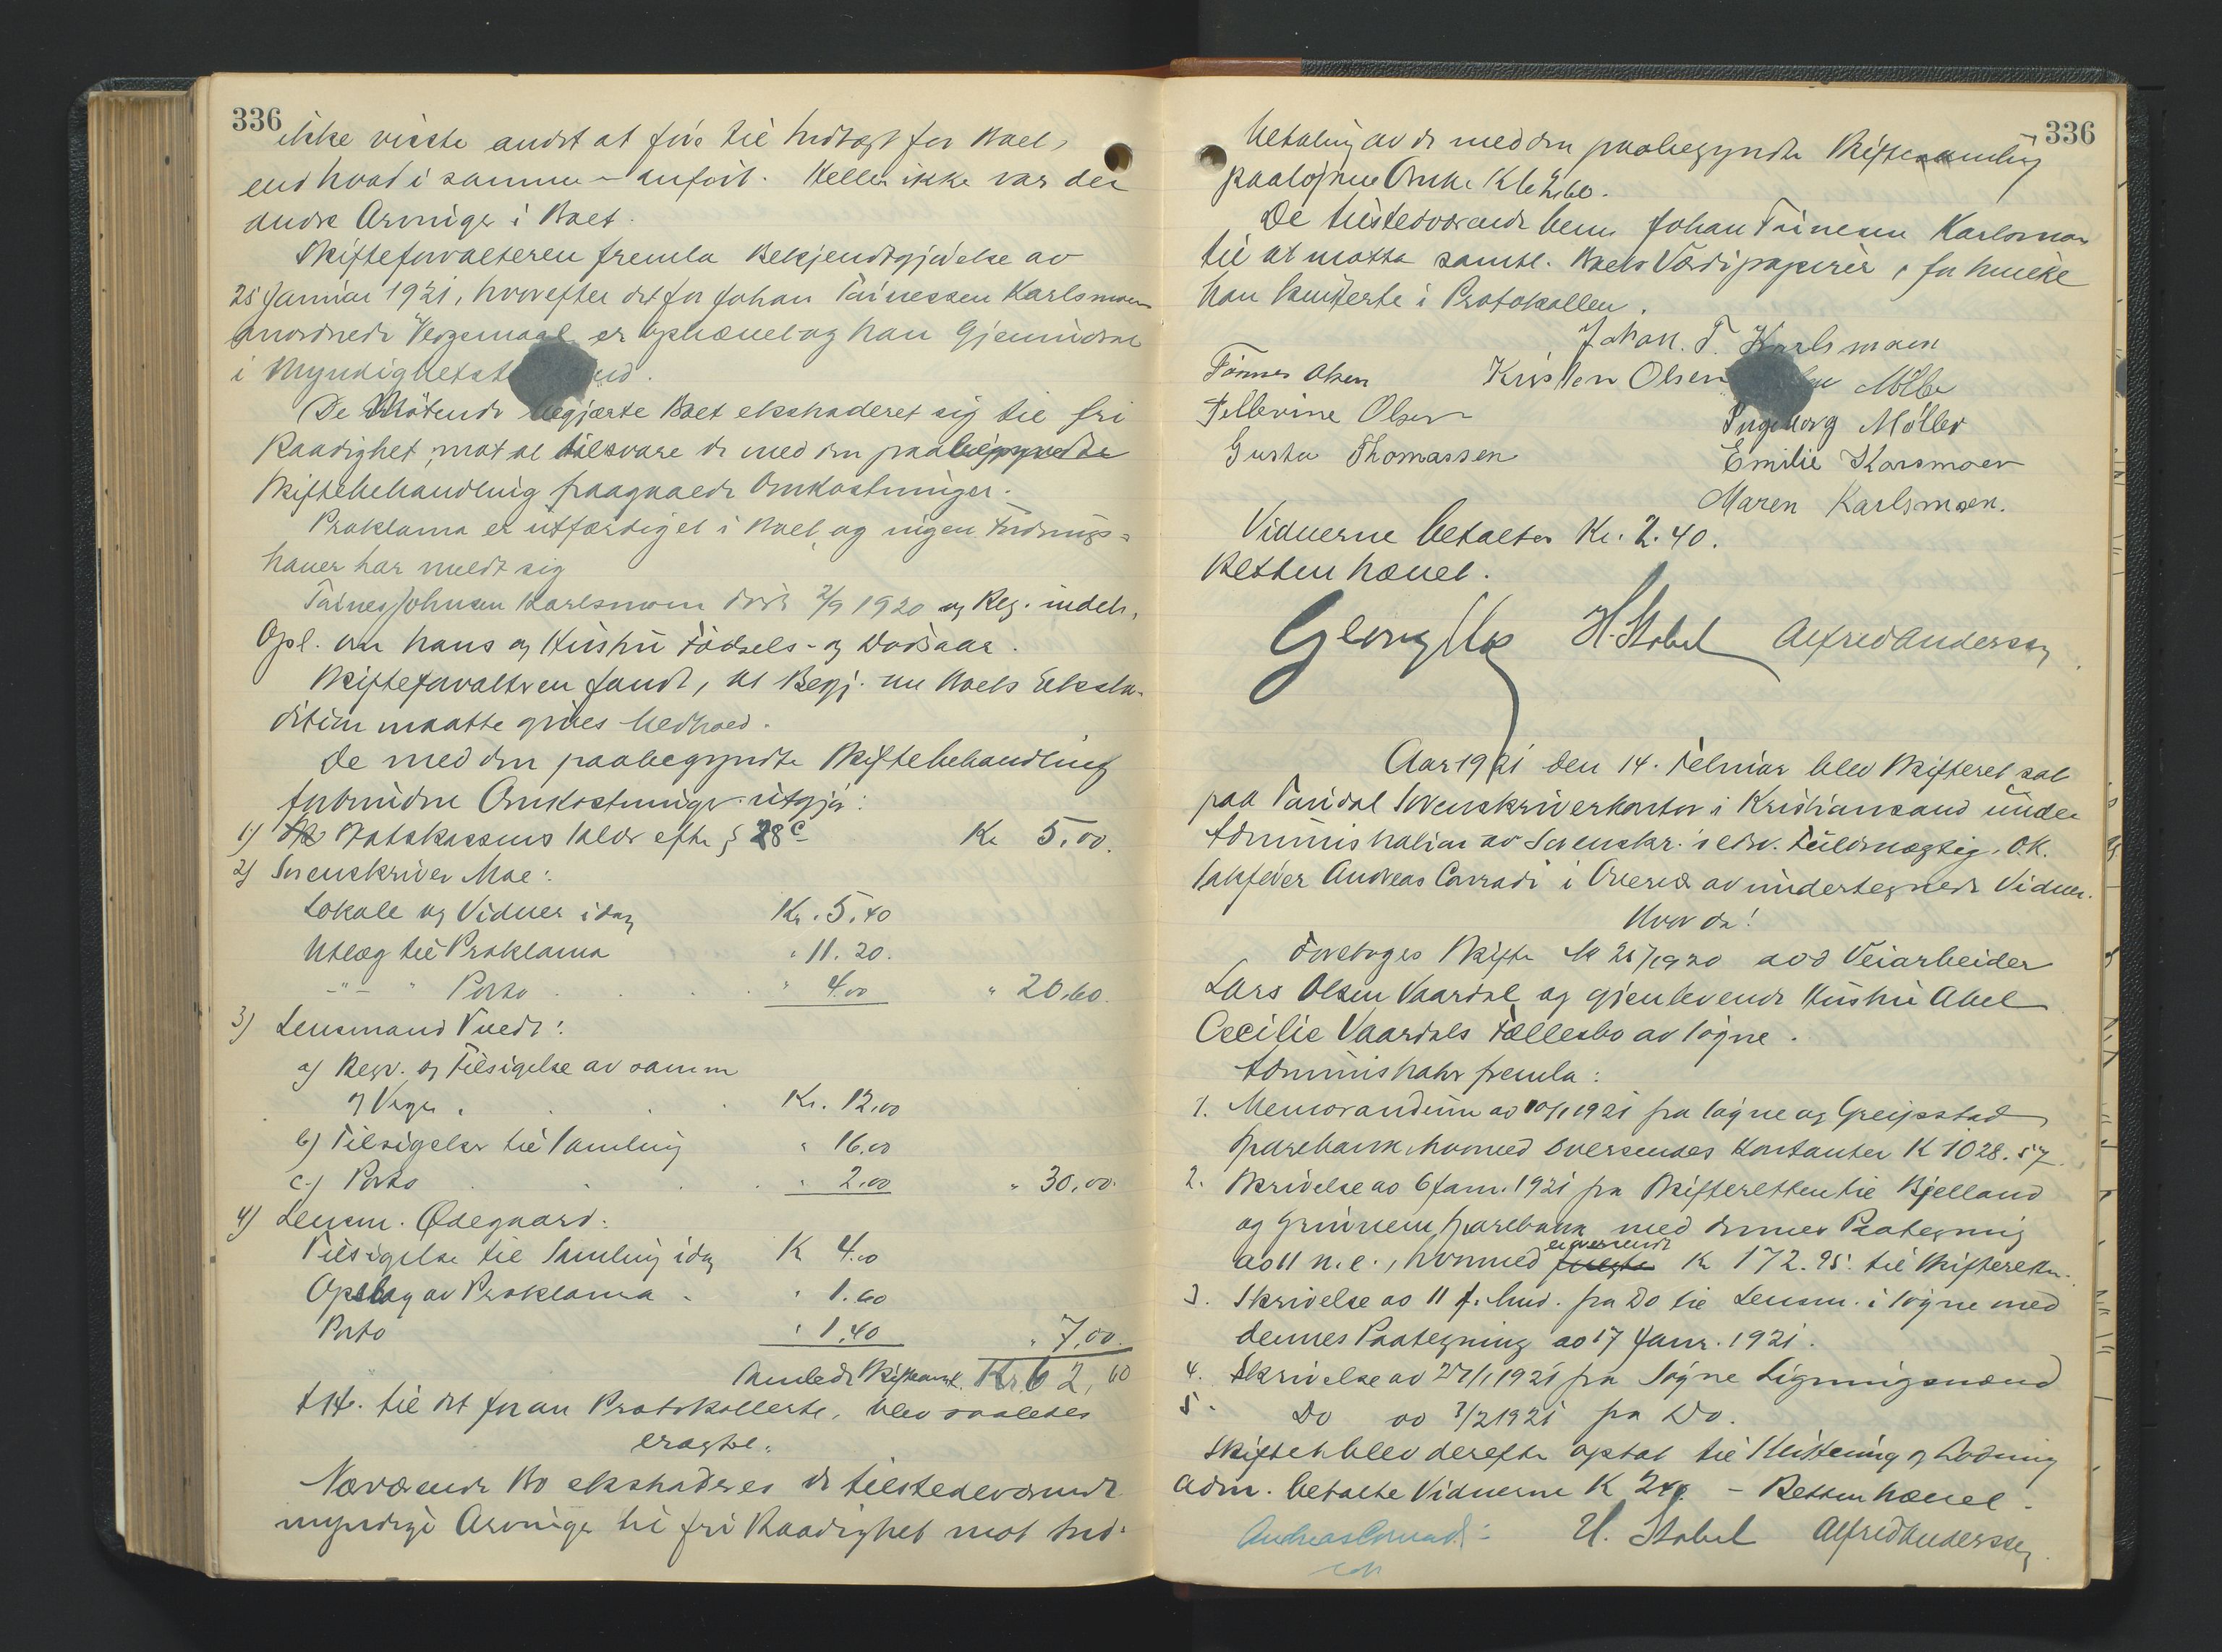 336
ikke visste andet at föie til Indtægt for Boet,
end hvad i samme - anfört. Heller ikke var der
andre Arvinger i Boet.
Skifteforvalteren fremla Bekjendtgjörelse av
25 Januar 1921, hvorefter det for Johan Tönnessen Karlsmoen
anordnede Vergemaal er ophævet og han Gjeninsat
i Myndighetst
De Mötende begjærte Boet ekstraderet sig til fri
Raadighet, mot at tilsvare de med den paabegyndte
Skiftebehandling paagaaede Omkostninger.
Proklama er utfærdiget i Boet, og ingen Fordrings-
haver har meldt sig
Tönnes Johnsen Karlsmoen döde 2/9 1920 og Reg. indeh.
Opl. om hans og Hustru Födsels- og Dödsaar.
Skifteforvalteren fandt, at Begj. om Boets Ekstra-
dition maatte gives Medhold.
De med den paabegyndte Skiftebehandling
forbundne Omkostninger utgjör:
1) Statskassens Gebyr efter § 28 c Kr 5.00.
2) Sorenskriver Moe:
Lokale og Vidner idag Kr. 5.40
Utlæg til Proklama " 11.20.
-"- " Porto . . . " 4.00 " 20.60.
3) Lensmand Tvedt:
a) Regr. og Tilsigelse av samme
og Verger . . . Kr. 12.00
b) Tilsigelser til Samling " 16.00
c.) Porto . . . " 2.00 " 30.00.
4) Lensm. Ödegaard:
Tilsigelse til Samling idag K 4.00
Opslag av Proklama . " 1.60
Porto " 1.40 " 7.00.
Samlede Skifteomk. Kr. 62,60
I Hh. til det foran Protokollerte, blev saaledes
eragtet:
Nærværende Bo ekstraderes de tilstedeværende
myndige Arvinger til fri Raadighet mot Ind-
336
betaling av de med den paabegyndte Skiftesamling
paalöpne Omk. Kr 62,60.
De tilstedeværende bem. Johan Tönnessen Karlsmoen
til at motta samtl. Boets Værdipapirer, for hvilke
han kvitterte i Protokollen.
Johan. T. Karlsmoen
Tönnes Olsen Kristen Olsen Mölle
Tellevine Olsen Ingeborg Möller
Gusta Thomassen Emilie Karsmoen
Maren Karlsmoen.
Vidnerne betaltes Kr. 2.40.
Retten hævet.
Georg Moe H. Stabel Alfred Anderssen
Aar 1921 den 14. Februar blev Skifteret sat
paa Torridal Sorenskriverkontor i Kristiansand under
Administration av Sorenskr. edsv. Fuldmægtig, O.R.
Sakförer Andreas Conradi i Overvær av undertegnede Vidner.
Hvor da!
Foretoges Skifte No 25/1920 av Veiarbeider
Lars Olsen Vaardal og gjenlevende Hustru Abel
Cecilie Vaardals Fællesbo av Sögne.
Administrator fremla:
1. Memorandum av 10/1 1921 fra Sögne og Greipstad
Sparebank, hvormed oversendes Kontanter K 1028.57.
2. Skrivelse av 6 Jan. 1921 fra Skifteretten til Bjelland
og Grindem Sparebank med dennes Paategning
av 11 n. e., hvormed er oversendt Kr 172.95 til Skifteretten.
3. Skrivelse av 11 f. hvd. fra Do til Lensm. i Sögne med
dennes Paategning av 17 Janr. 1921.
4. Skrivelse av 27/1 1921 fra Sögne Ligningsnævnd
5. Do av 3/2 1921 fra Do.
Skiftet blev derefter optat til Slutning og Lodning
Adm. betalte Vidnerne K 2.40. - Retten hævet.
Andreas Conradi H. Stabel Alfred Anderssen